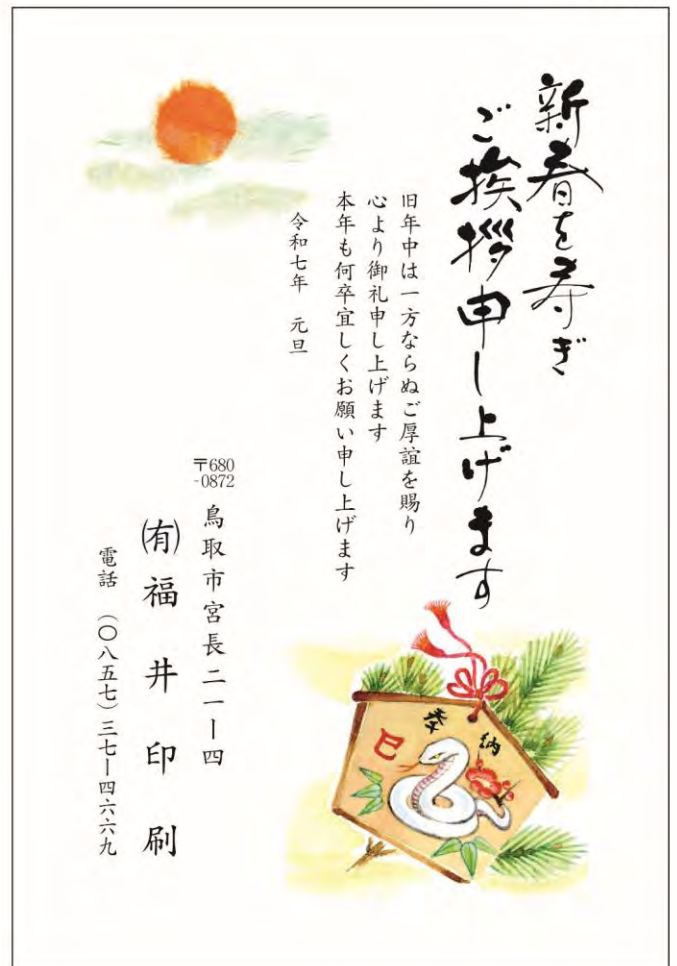 新春を寿ぎ
ご挨拶申し上げます
旧年中は一方ならぬご厚誼を賜り
心より御礼申し上げます
本年も何卒宜しくお願い申し上げます
令和七年　元旦
〒680
-0872
鳥取市宮長二一ー四
㈲福井印刷
電話　（〇八五七）三七ー四六六九
奉納
巳